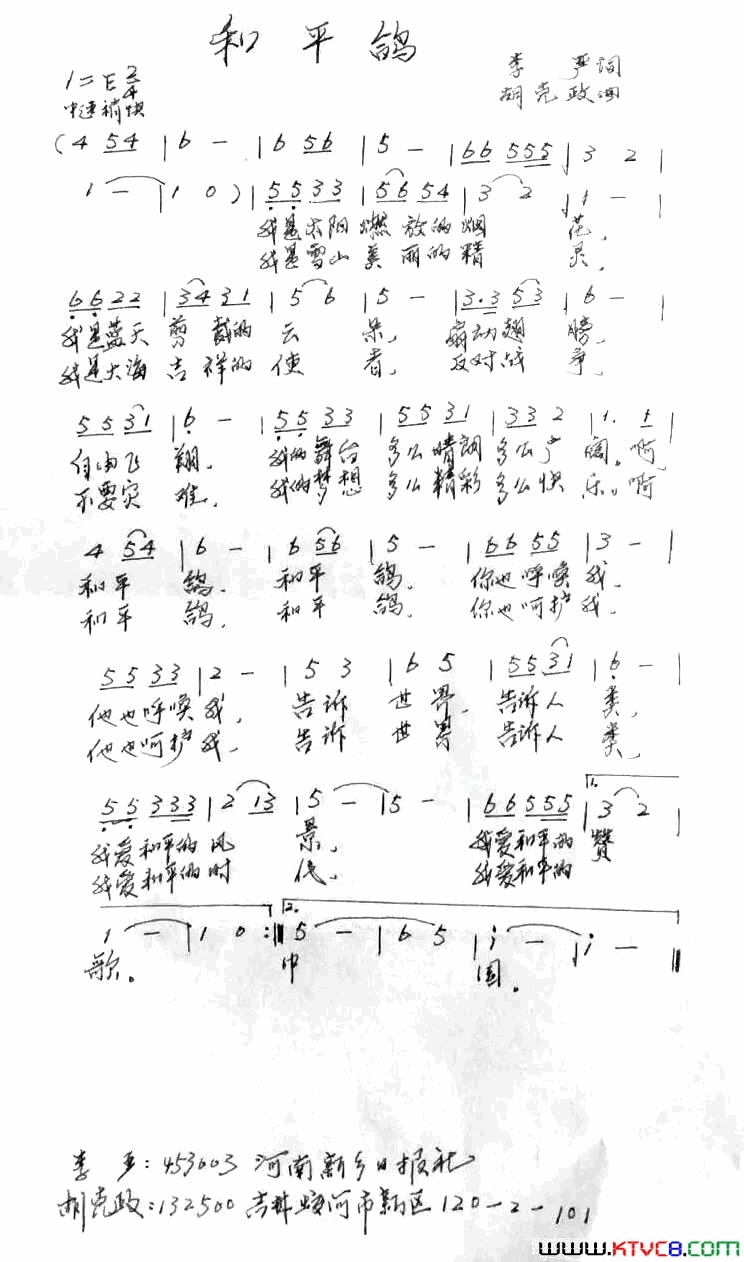 和平鸽
1=E 2/4
中速稍快
李严词
胡克政曲
(4 54 | 6 - | 6 56 | 5 - | 66 555 | 3 2 |
1 - | 1 0 ) | 55 33 | 56 54 | 3 2 | 1 - |
我是太阳燃放的烟花,
我是雪山美丽的精灵,
66 22 | 34 31 | 5 6 | 5 - | 3·3 53 | 6 - |
我是蓝天剪裁的云朵, 扇动翅膀,
我是大海吉祥的使者, 反对战争,
55 31 | 6 - | 55 33 | 55 31 | 33 2 | 1. 1 |
自由飞翔。 我的舞台多么晴朗多么广阔。啊,
不要灾难。 我的梦想多么精彩多么快乐。啊
4 54 | 6 - | 6 56 | 5 - | 66 55 | 3 - |
和平鸽, 和平鸽, 你也呼唤我,
和平鸽, 和平鸽, 你也呵护我,
55 33 | 2 - | 5 3 | 6 5 | 55 31 | 6 - |
他也呼唤我, 告诉世界,告诉人类,
他也呵护我, 告诉世界 告诉人类,
55 333 | 2 13 | 5 - | 5 - | 66 555 | 1. 3 2 |
我爱和平的风景, 我爱和平的赞
我爱和平的时代, 我爱和平的
1 - | 1 0 :|| 2. 5 - | 6 5 | i - | i - ||
歌。 中国。
李严:453003 河南新乡日报社
胡克政:132500 吉林蛟河市新区120-2-101
www.KTVC8.com